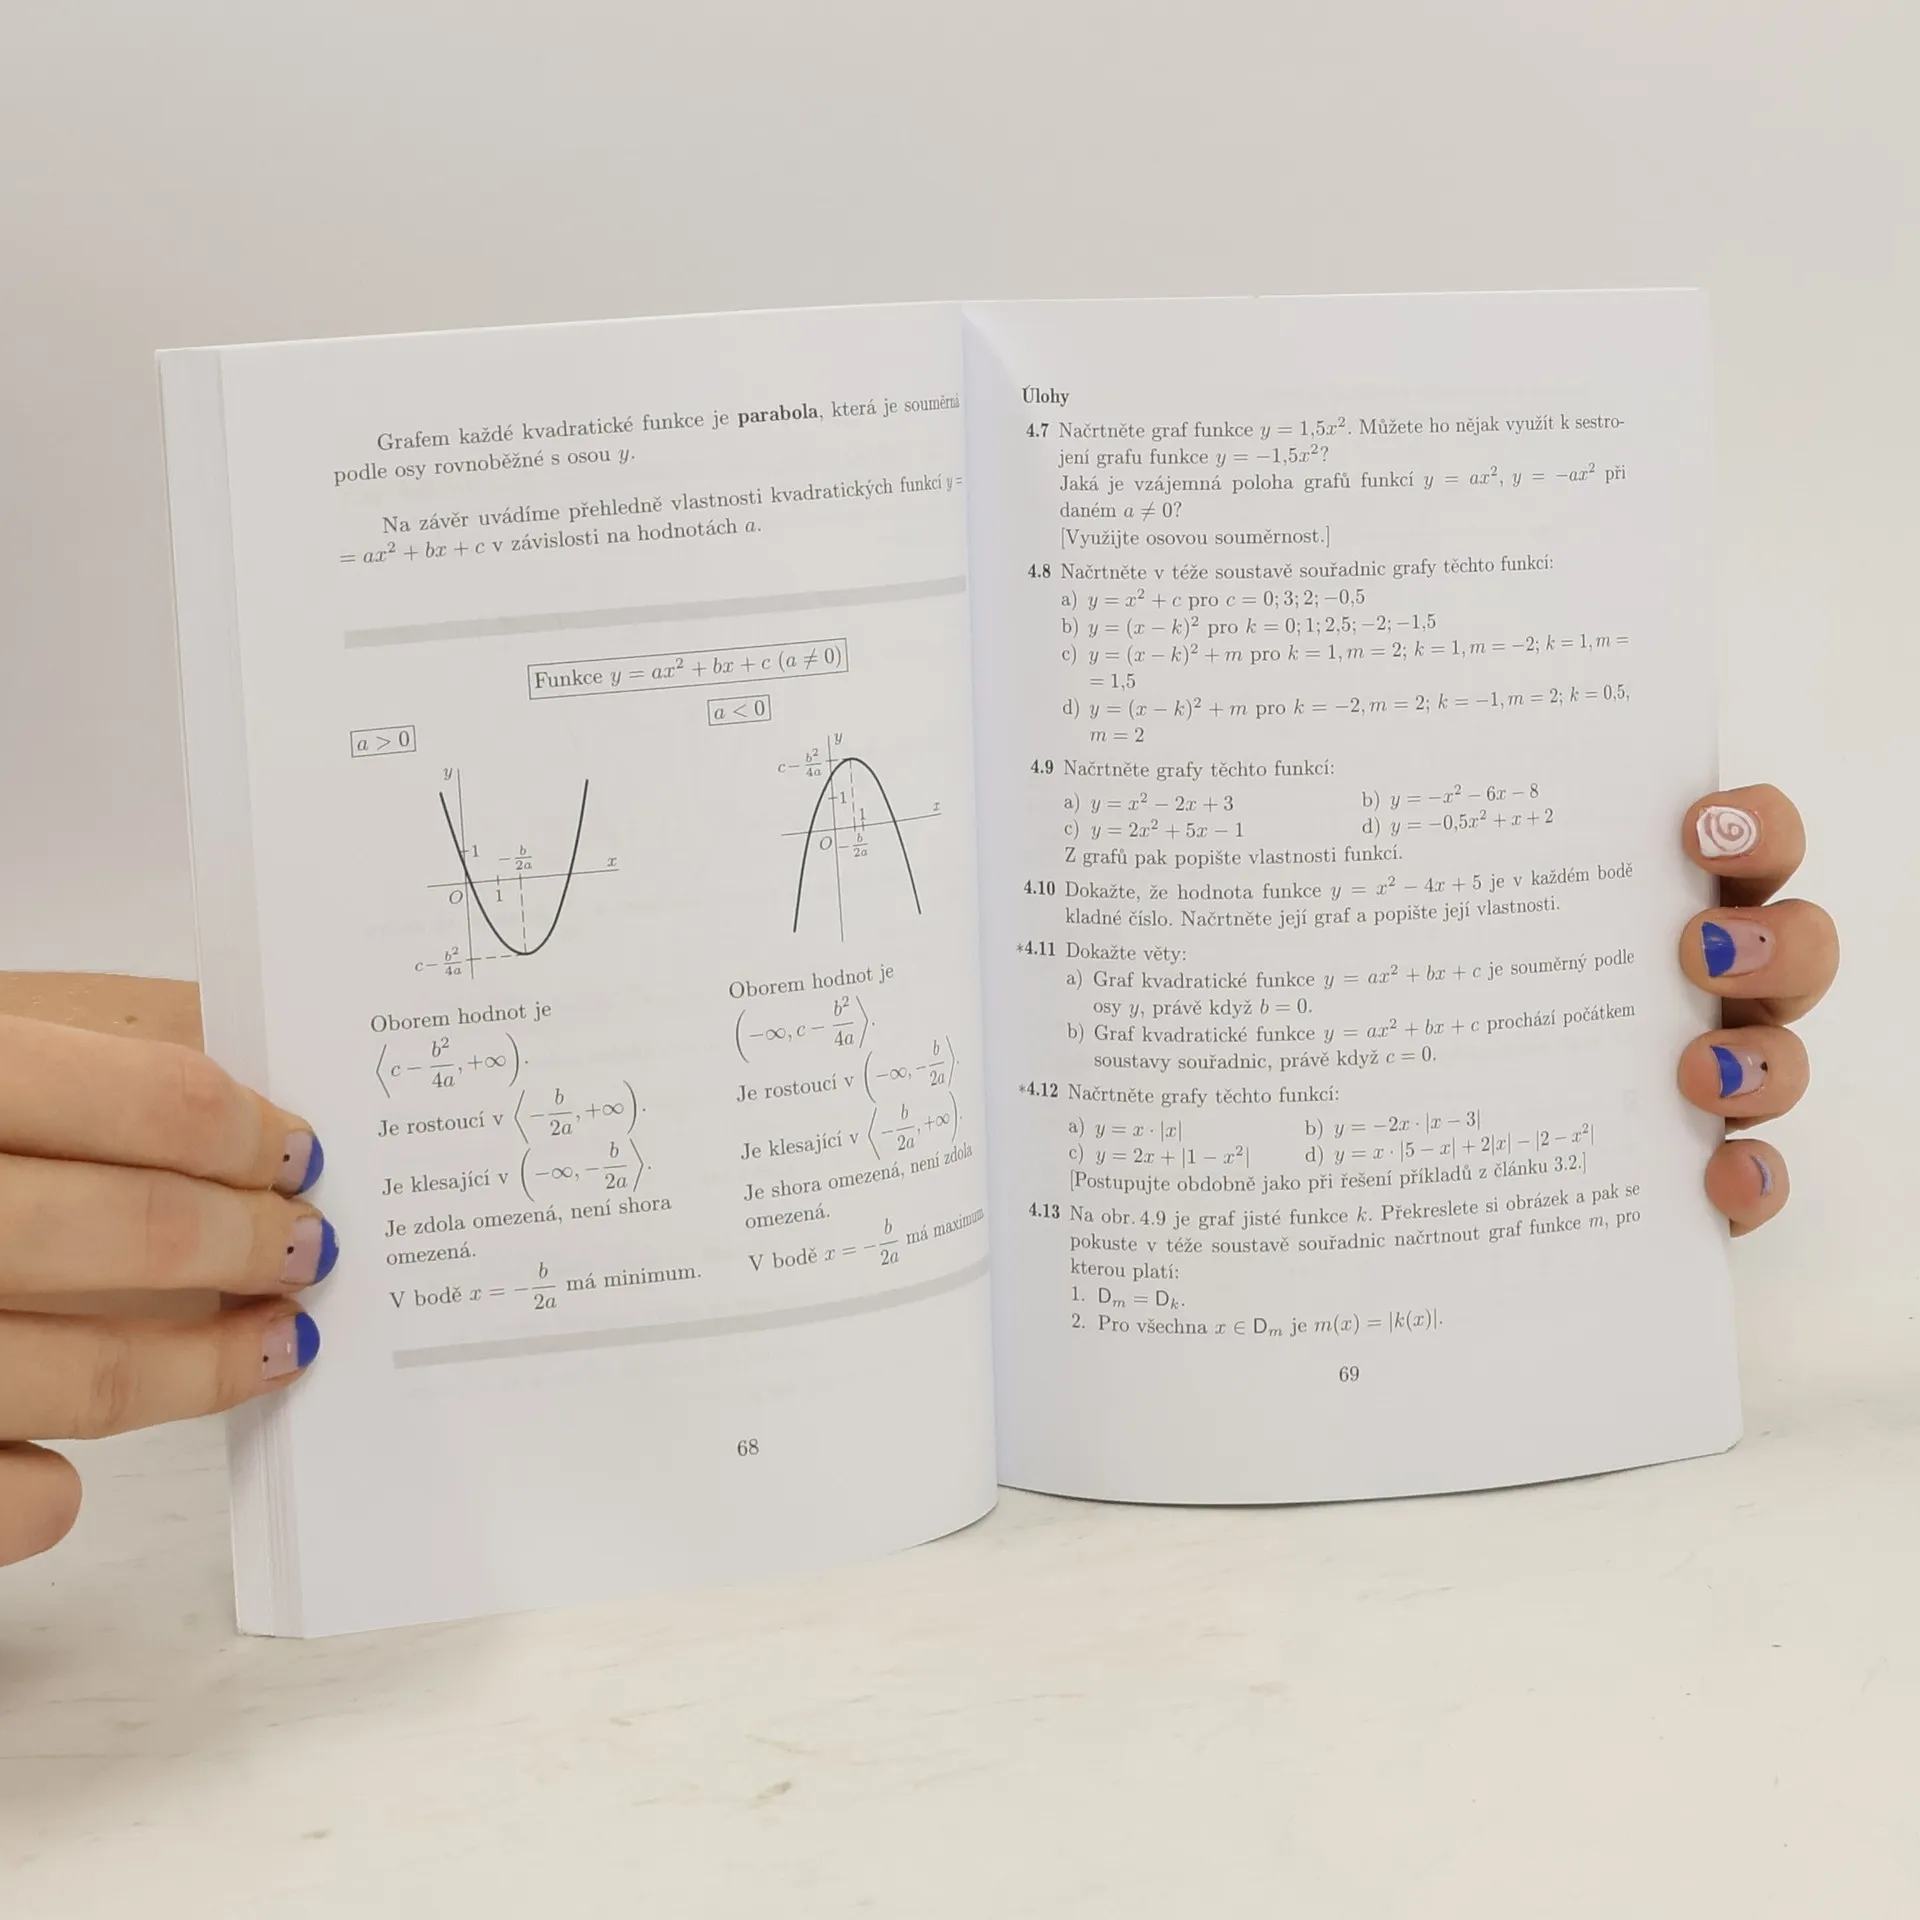 Grafem každé kvadratické funkce je parabola, která je souměrná
podle osy rovnoběžné s osou y.
Na závěr uvádíme přehledně vlastnosti kvadratických funkcí y =
= ax² + bx + c v závislosti na hodnotách a.
Funkce y = ax² + bx + c (a ≠ 0)
a > 0
y
1
−b/2a
x
O
1
c − b²/4a
Oborem hodnot je
⟨c − b²/4a, +∞).
Je rostoucí v ⟨−b/2a, +∞).
Je klesající v (−∞, −b/2a⟩.
Je zdola omezená, není shora
omezená.
V bodě x = −b/2a má minimum.
a < 0
y
c − b²/4a
1
1
x
O
−b/2a
Oborem hodnot je
(−∞, c − b²/4a⟩.
Je rostoucí v (−∞, −b/2a⟩.
Je klesající v ⟨−b/2a, +∞).
Je shora omezená, není zdola
omezená.
V bodě x = −b/2a má maximum
68
Úlohy
4.7 Načrtněte graf funkce y = 1,5x². Můžete ho nějak využít k sestro-
jení grafu funkce y = −1,5x²?
Jaká je vzájemná poloha grafů funkcí y = ax², y = −ax² při
daném a ≠ 0?
[Využijte osovou souměrnost.]
4.8 Načrtněte v téže soustavě souřadnic grafy těchto funkcí:
a) y = x² + c pro c = 0; 3; 2; −0,5
b) y = (x − k)² pro k = 0; 1; 2,5; −2; −1,5
c) y = (x − k)² + m pro k = 1, m = 2; k = 1, m = −2; k = 1, m =
= 1,5
d) y = (x − k)² + m pro k = −2, m = 2; k = −1, m = 2; k = 0,5,
m = 2
4.9 Načrtněte grafy těchto funkcí:
a) y = x² − 2x + 3 b) y = −x² − 6x − 8
c) y = 2x² + 5x − 1 d) y = −0,5x² + x + 2
Z grafů pak popište vlastnosti funkcí.
4.10 Dokažte, že hodnota funkce y = x² − 4x + 5 je v každém bodě
kladné číslo. Načrtněte její graf a popište její vlastnosti.
*4.11 Dokažte věty:
a) Graf kvadratické funkce y = ax² + bx + c je souměrný podle
osy y, právě když b = 0.
b) Graf kvadratické funkce y = ax² + bx + c prochází počátkem
soustavy souřadnic, právě když c = 0.
*4.12 Načrtněte grafy těchto funkcí:
a) y = x · |x| b) y = −2x · |x − 3|
c) y = 2x + |1 − x²| d) y = x · |5 − x| + 2|x| − |2 − x²|
[Postupujte obdobně jako při řešení příkladů z článku 3.2.]
4.13 Na obr. 4.9 je graf jisté funkce k. Překreslete si obrázek a pak se
pokuste v téže soustavě souřadnic načrtnout graf funkce m, pro
kterou platí:
1. Dₘ = Dₖ.
2. Pro všechna x ∈ Dₘ je m(x) = |k(x)|.
69